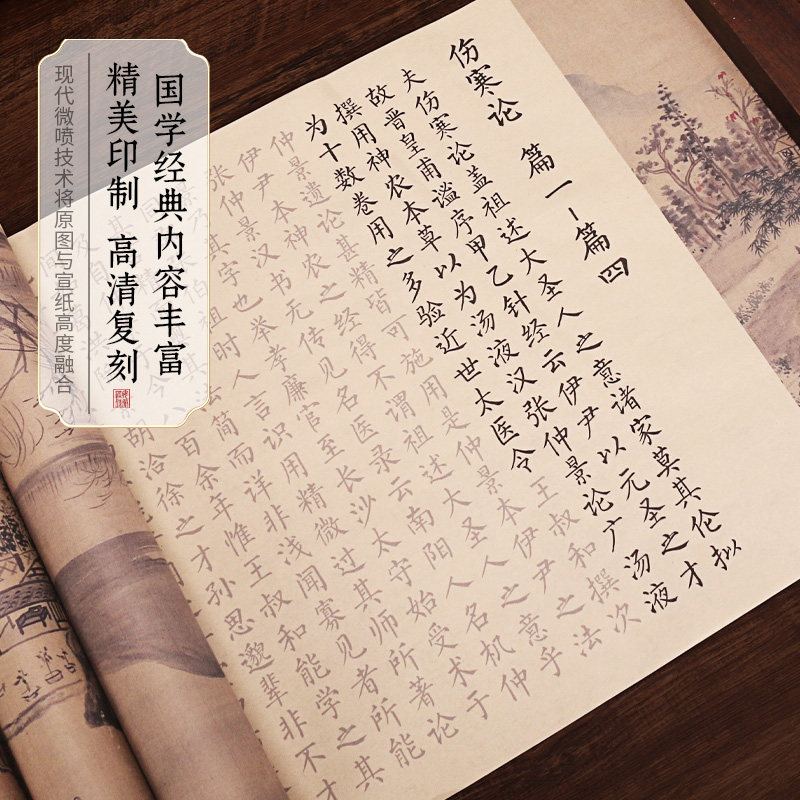 国学经典内容丰富
精美印制 高清复刻
现代微喷技术将原图与宣纸高度融合
伤寒论 篇一-篇四
夫伤寒论盖祖述大圣人之意诸家莫其伦拟
故晋皇甫谧序甲乙针经云伊尹以元圣之才
撰用神农本草以为汤液汉张仲景论广汤液
为十数卷用之多验近世太医令王叔和撰次
仲景遗论甚精皆可施用是仲景本伊尹之法
伊尹本神农之经得不谓祖述大圣人之意乎
张仲景汉书无传见名医录云南阳人名机仲
乃其字也举孝廉官至长沙太守始受术于
伯祖时人言识用精微过其师所著论
简而详非浅闻寡见者所能
今八百余年惟王叔和能学之其
胡洽徐之才孙思邈辈非不才